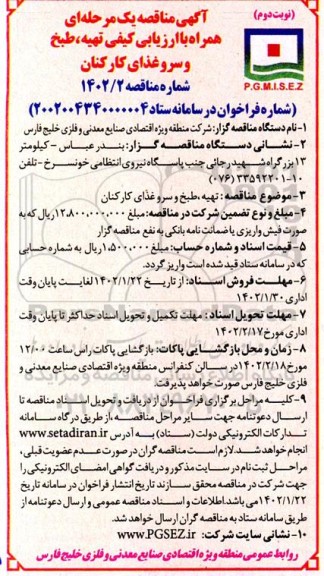 (نوبت دوم)
آگهی مناقصه یک مرحله‌ای
همراه با ارزیابی کیفی تهیه، طبخ
و سرو غذای کارکنان
شماره مناقصه ۱۴۰۲/۲
P.G.M.I.S.E.Z
(شماره فراخوان در سامانه ستاد ۲۰۰۲۰۰۴۳۴۰۰۰۰۰۰۴)
۱-نام دستگاه مناقصه گزار: شرکت منطقه ویژه اقتصادی صنایع معدنی و فلزی خلیج فارس
۲- نشانی دستگاه مناقصــه گــزار: بنــدر عبــاس - کیلومتر
۱۳ بزرگراه شــهید رجائی جنب پاســگاه نیروی انتظامی خونســرخ - تلفن
۱۰-۳۳۵۹۲۲۰۱ (۰۷۶)
۳-موضوع مناقصه: تهیه، طبخ و سرو غذای کارکنان
۴-مبلغ و نوع تضمین شرکت در مناقصه: مبلغ ۱۲،۸۰۰،۰۰۰،۰۰۰ ریال که به
صورت فیش واریزی یا ضمانت نامه بانکی به نفع مناقصه گزار
۵- قیمت اسناد و شماره حساب: مبلغ ۱،۵۰۰،۰۰۰ ریال به شماره حسابی
که در سامانه ستاد قید شده است واریز گردد.
۶-مهلــت فروش اســناد: از تاریخ ۱۴۰۲/۱/۲۲ لغایت پایان وقت
اداری ۱۴۰۲/۱/۳۰
۷-مهلت تحویل اسناد: مهلت تکمیل و تحویل اسناد حداکثر تا پایان وقت
اداری مورخ ۱۴۰۲/۲/۱۷
۸-زمان و محل بازگشــایی پاکات: بازگشایی پاکات راس ساعت ۱۲/۰۰
مورخ ۱۴۰۲/۲/۱۸ در سالن کنفرانس منطقه ویژه اقتصادی صنایع معدنی و
فلزی خلیج فارس صورت خواهد پذیرفت.
۹-کلیــه مراحل برگزاری فراخــوان از دریافت و تحویل اســناد مناقصه تا
ارسال دعوتنامه جهت سایر مراحل مناقصــه، از طریق درگاه سامانه
تدارکات الکترونیکی دولت (ستاد) به آدرس www.setadiran.ir
انجام خواهد شد. لازم است مناقصه گران در صورت عدم عضویت قبلی،
مراحل ثبت نام در سایت مذکور و دریافت گواهی امضای الکترونیکی را
جهت شرکت در مناقصه محقق سازند تاریخ انتشار فراخوان در سامانه تاریخ
۱۴۰۲/۱/۲۲ می باشد. اطلاعات و اسناد مناقصه عمومی و ارسال دعوتنامه از
طریق سامانه ستاد به مناقصه گران ارسال خواهد شد.
۱۰- نشانی سایت شرکت: www.PGSEZ.ir
روابط عمومی منطقه ویژه اقتصادی صنایع معدنی و فلزی خلیج فارس